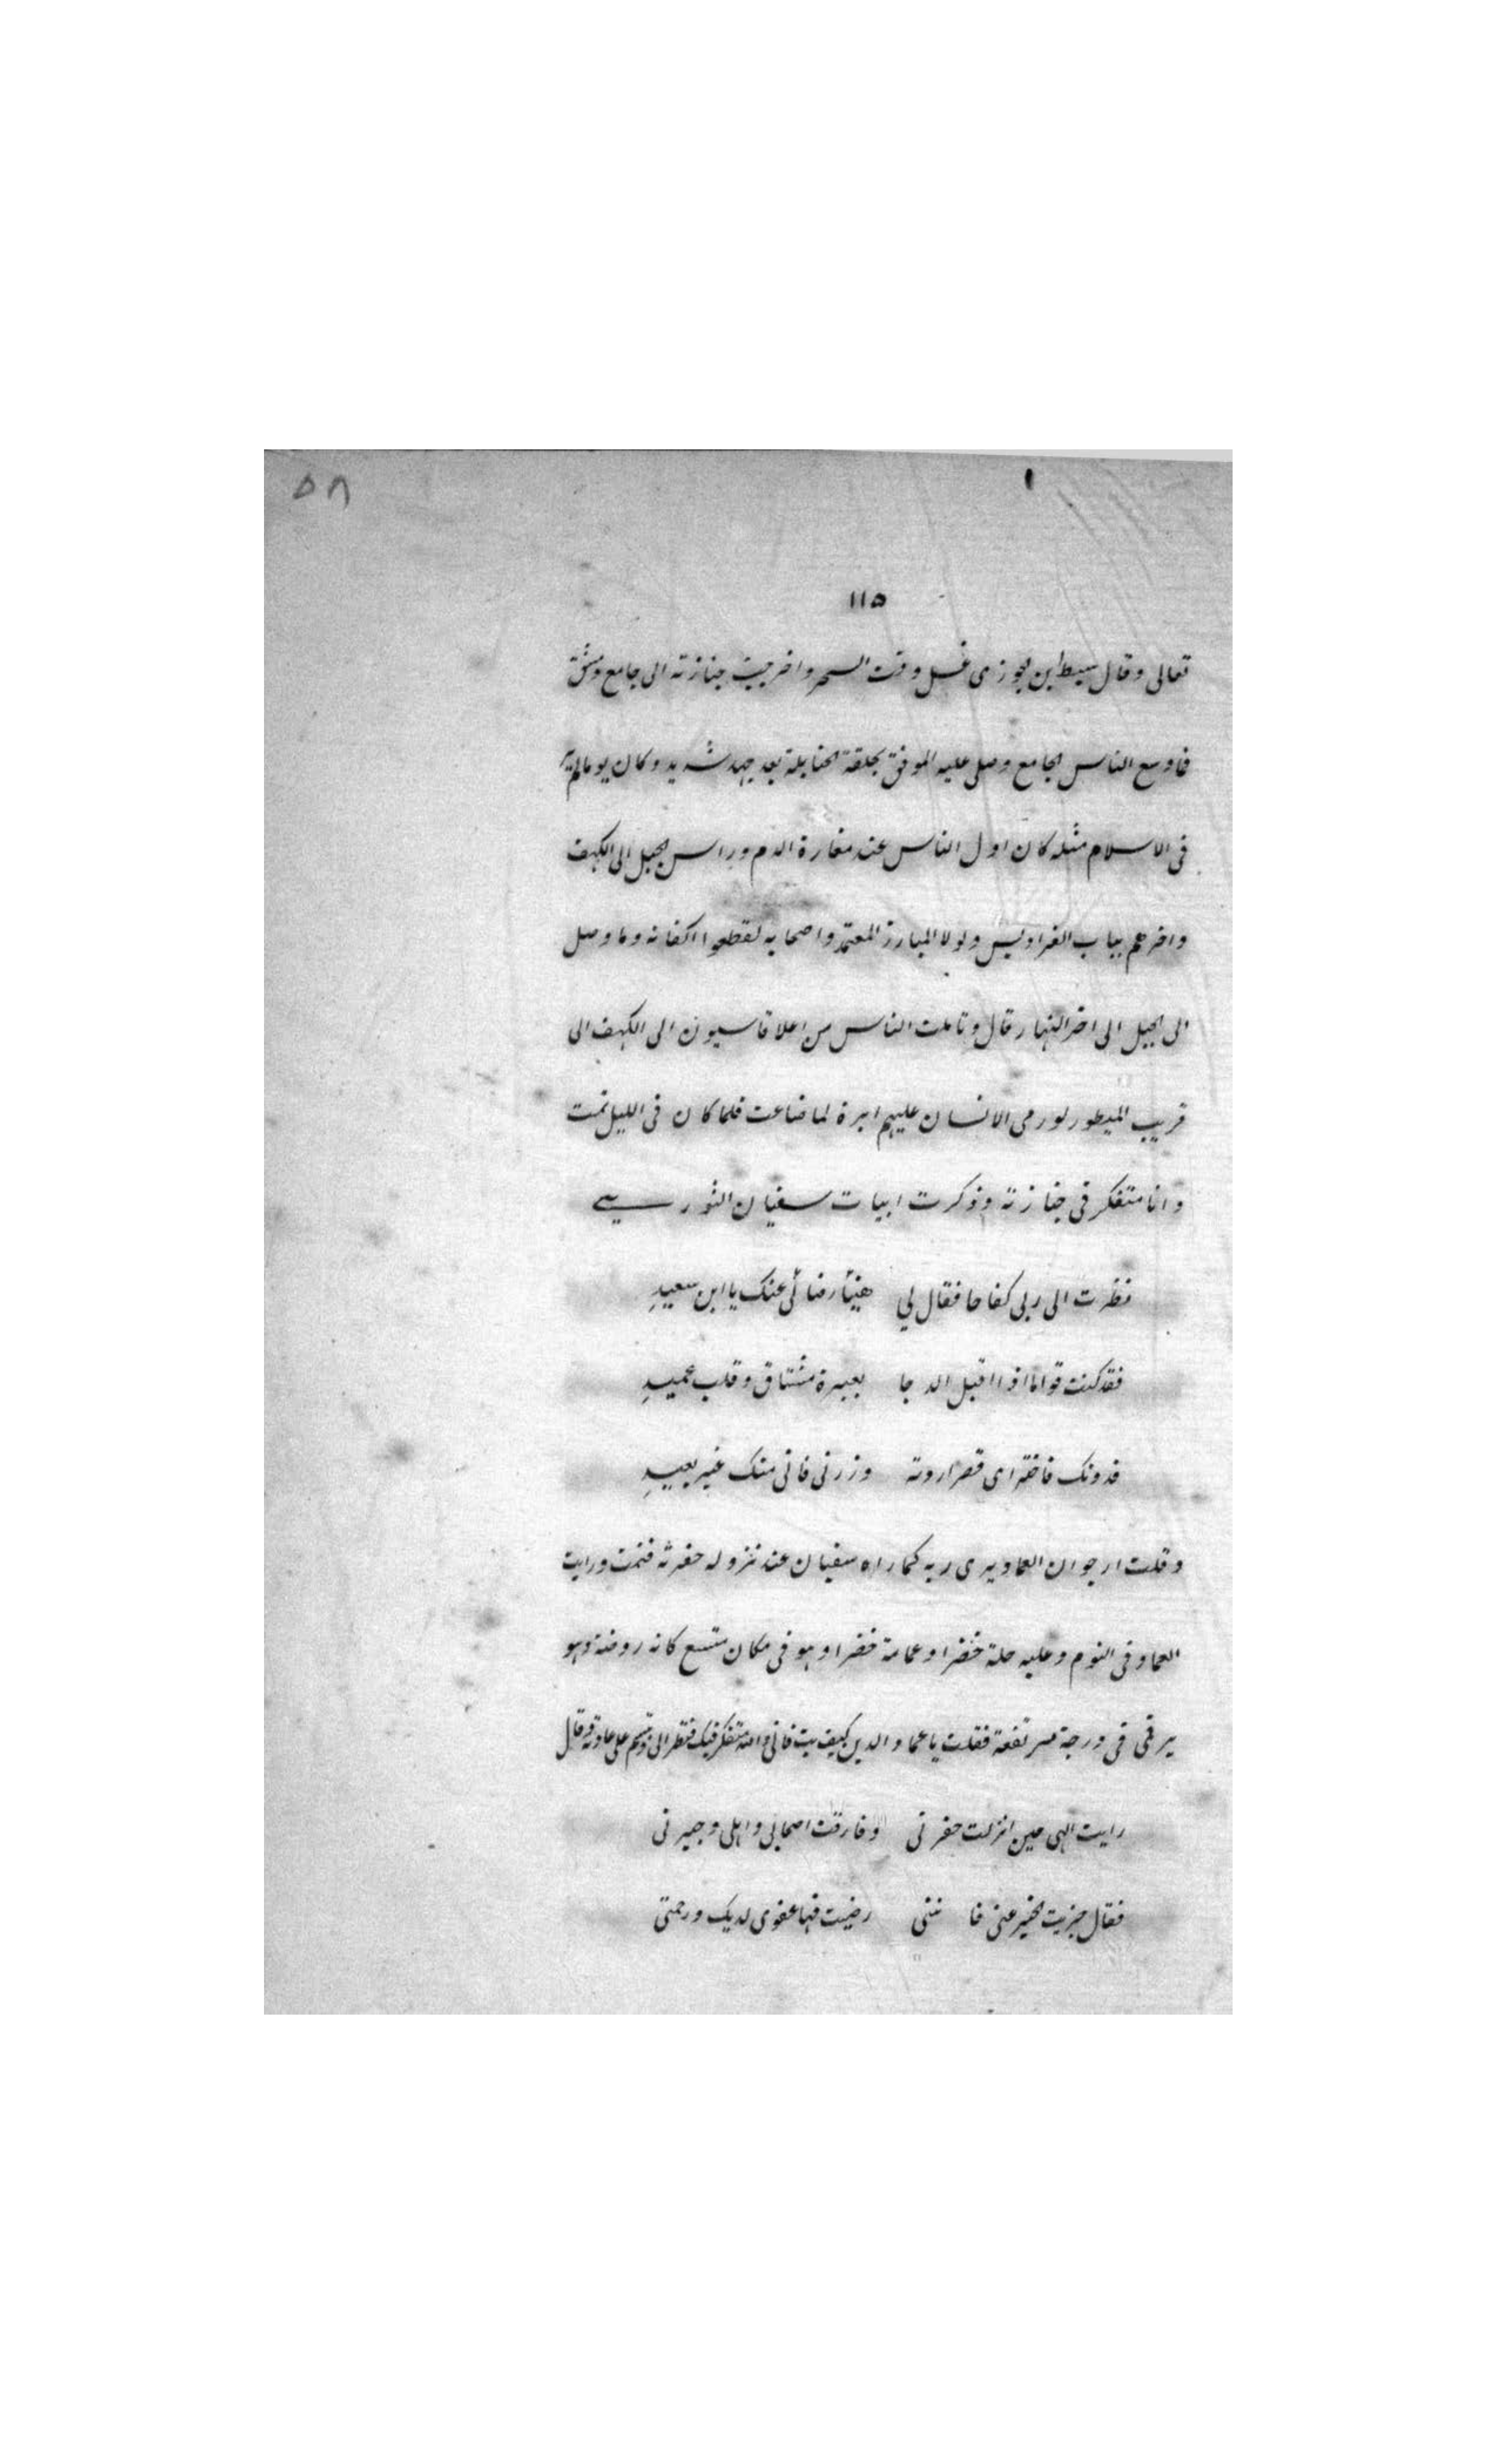 ٥٨
١
١١٥
تعالى وقال سبط ابن الجوزى غسل وقت السحر واخرجت جنازته الى جامع دمشق
فما وسع الناس الجامع وصلى عليه الموفق بحلقة الحنابلة بعد جهد شديد وكان يوما لم ير
فى الاسلام مثله كان اول الناس عند مغارة الدم وراس الجبل الى الكهف
واخرهم بباب الفراديس ولولا المبارز المعتمد واصحابه لقطعوا اكفانه وما وصل
الى الجبل الى اخر النهار قال وتاملت الناس من اعلا قاسيون الى الكهف الى
قريب الميطور لو رمى الانسان عليهم ابرة لما ضاعت فلما كان فى الليل نمت
وانا متفكر فى جنازته وذكرت ابيات سفيان الثورى
نظرت الى ربى كفاحا فقال لي هنيأ رضائى عنك يا ابن سعيدِ
فقد كنت قواما اذا اقبل الدجا بعبرة مشتاق وقلب عميدِ
فدونك فاختر اى قصر اردته وزرنى فانى منك غير بعيدِ
وقلت ارجو ان العماد يرى ربه كما راه سفيان عند نزوله حفرته فنمت ورايت
العماد فى النوم وعليه حلة خضرا وعمامة خضرا وهو فى مكان متسع كانه روضة وهو
يرقى فى درجة مرتفعة فقلت يا عماد الدين كيف بت فانى والله متفكر فيك فنظر الى وتبسم على عادته وقال
رايت الهى حين انزلت حفرتى وفارقت اصحابى واهلى وجيرتى
فقال جزيت الخير عنى فاننى رضيت فها عفوى لديك ورحمتى